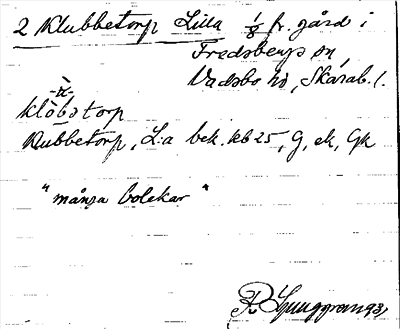 2 Klubbetorp Lilla 1/8 fr. gård i
Fredsbergs sn,
Vadsbo hd, Skarab. l.
klòbstorp
Klubbetorp, L:a bek. kb 25, G, ek, Gk
"många bolekar"
R Ljunggren 93